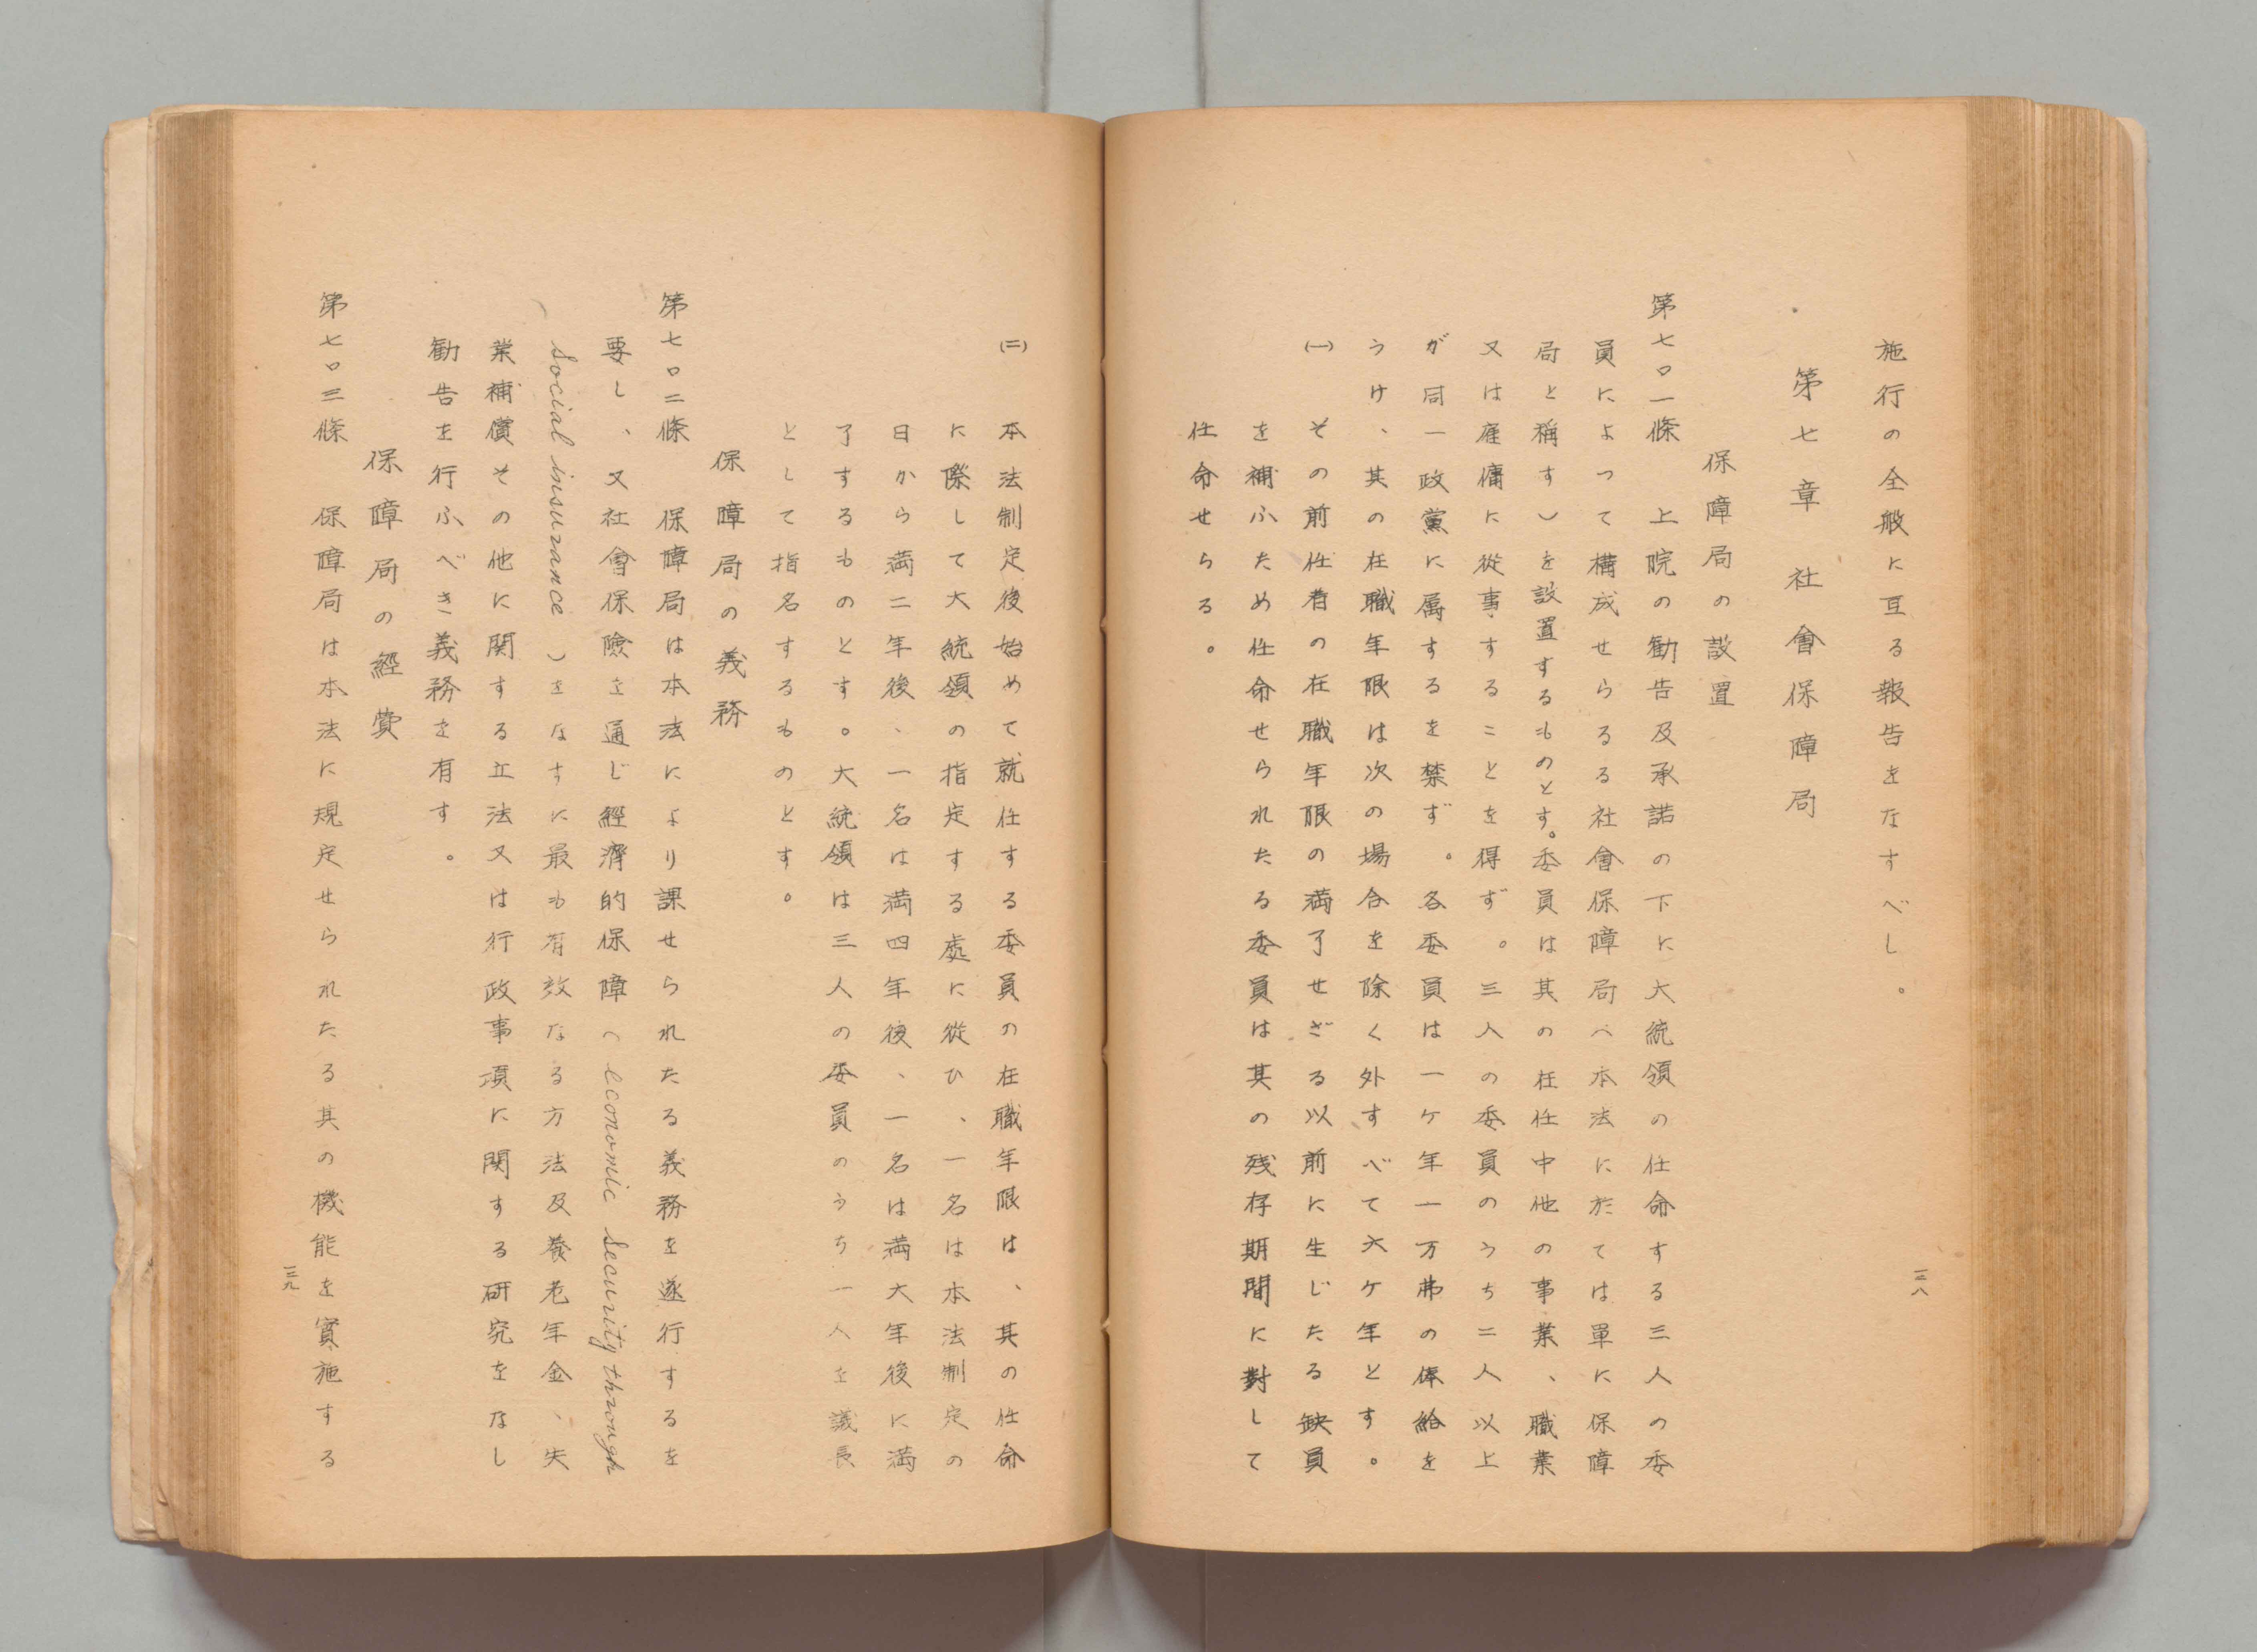 施行の全般に亙る報告をなすべし。
第七章　社會保障局
保障局の設置
第七〇一條　上院の勧告及承諾の下に大統領の任命する三人の委
員によって構成せらるる社會保障局（本法に於ては單に保障
局と稱す）を設置するものとす。委員は其の在任中他の事業、職業
又は雇傭に從事することを得ず。三人の委員のうち二人以上
が同一政黨に属するを禁ず。各委員は一ケ年一万弗の俸給を
うけ、其の在職年限は次の場合を除く外すべて六ケ年とす。
㈠　その前任者の在職年限の満了せざる以前に生じたる缺員
を補ふため任命せられたる委員は其の残存期間に對して
任命せらる。
一三八
㈡　本法制定後始めて就任する委員の在職年限は、其の任命
に際して大統領の指定する處に從ひ、一名は本法制定の
日から満二年後、一名は満四年後、一名は満六年後に満
了するものとす。大統領は三人の委員のうち一人を議長
として指名するものとす。
保障局の義務
第七〇二條　保障局は本法により課せられたる義務を遂行するを
要し、又社會保險を通じ經濟的保障（economic security through
social insurance）をなすに最も有效なる方法及養老年金、失
業補償その他に関する立法又は行政事項に関する研究をなし
勧告を行ふべき義務を有す。
保障局の經費
第七〇三條　保障局は本法に規定せられたる其の機能を實施する
一三九